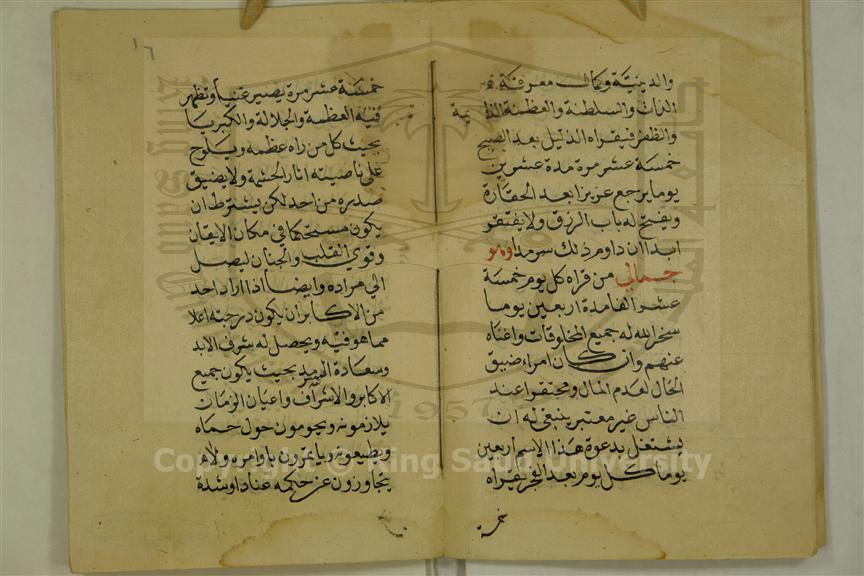 والدينية وكمالت معرفة
الذات والسلطنة والعظمة
والظفر فيقراه الذليل بعد الصبح
خمسة عشر مرة مدة عشرين
يوما يرجع عزيزا بعد الحقارة
ويفتح له باب الرزق ولا يفتقر
ابدا ان داوم ذلك سرمدا وهو
جمالي من قراه كل يوم خمسة
عشر الفا مدة اربعين يوما
سخر الله له جميع المخلوقات واغناه
عنهم وان كان امراء ضيق
الحال لعدم المال ومحتقرا عند
الناس غير معتبر ينبغي له ان
يشتغل بدعوة هذا الاسم اربعين
يوما كل يوم بعد الفجر يقراه
خمسة
١٦
خمسة عشر مرة يصير غنيا وتظهر
فيه العظمة والجلالة والكبريا
بحيث كل من راه عظمه ويلوح
على ناصيته اثار الحشمة ولا يضيق
صدره من احد لكن يشترط ان
يكون مستحكما في مكان الايقان
وقوي القلب والجنان ليصل
الي مراده وايضا اذا اراد احد
من الاكابر ان يكون درجته اعلا
مما هو فيه ويحصل له شرف الابد
وسعادة السرمد بحيث يكون جميع
الاكابر والاشراف واعيان الزمان
يلازمونه ويحومون حول حماه
ويطيعونه وياتمرون باوامره ولا
يتجاوزون عن حكمه عنادا وشدة
Copyright © King Saud University
1957